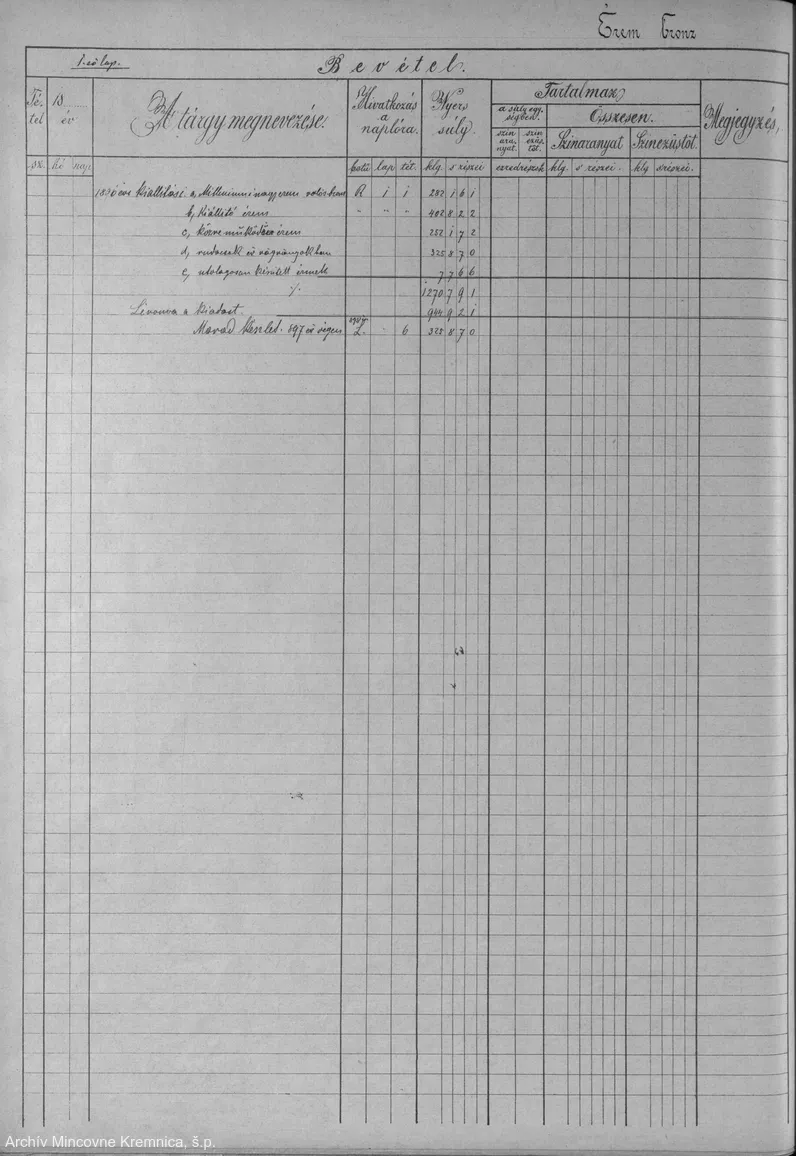 Érem bronz
1-ső lap.
Bevétel.
Té-
tel
18
év
A tárgy megnevezése.
Hivatkozás
a
naplóra.
Nyers
súly.
Tartalmaz
a súly egy-
ségben.
Összesen.
szín
ara-
nyat.
szín
ezüs-
töt.
Színaranyat
Színezüstöt.
Megjegyzés,
sz.
hó
nap
betű
lap
tét.
klg.
s részei
ezredrészek
klg.
s részei.
klg
s részei.
Kiállítási a, Millenniumi nagy érem R 1 1 282 1 6 1
b, Kiállító érem " " " 402 8 2 2
c, közreműködési érem 252 1 7 2
d, rudacsek és vágványokban 325 8 7 0
e, utólagosan készített érmek 7 7 6 6
./. 1270 7 9 1
Levonva a kiadást 944 9 2 1
Marad készlet 897 év végén L. " 6 325 8 7 0
Archív Mincovne Kremnica, š.p.